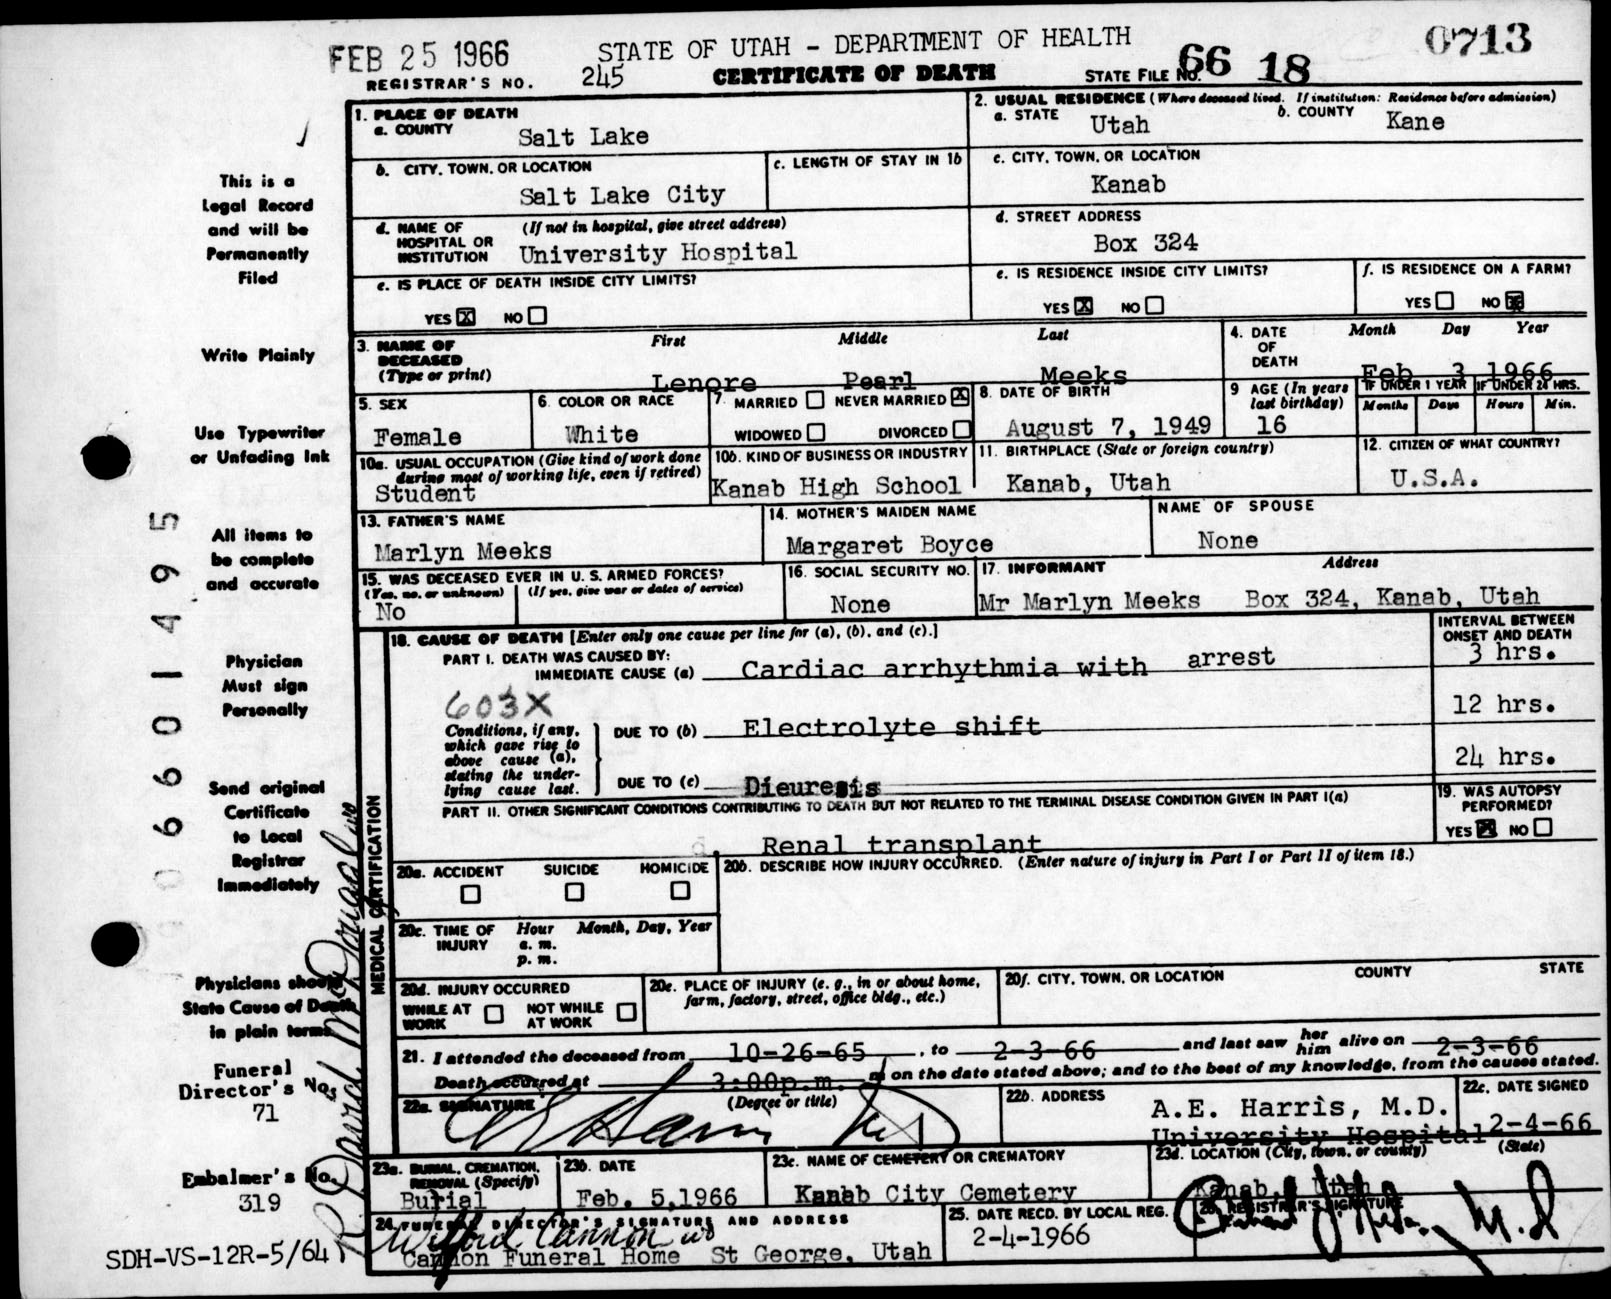 FEB 25 1966
STATE OF UTAH - DEPARTMENT OF HEALTH
0713
REGISTRAR'S NO. 245
CERTIFICATE OF DEATH
STATE FILE NO. 66 18
1. PLACE OF DEATH
a. COUNTY Salt Lake
2. USUAL RESIDENCE (Where deceased lived. If institution: Residence before admission)
a. STATE Utah b. COUNTY Kane
b. CITY, TOWN, OR LOCATION
Salt Lake City
c. LENGTH OF STAY IN 1b
c. CITY, TOWN, OR LOCATION
Kanab
d. NAME OF HOSPITAL OR INSTITUTION (If not in hospital, give street address)
University Hospital
d. STREET ADDRESS
Box 324
e. IS PLACE OF DEATH INSIDE CITY LIMITS?
YES X NO
e. IS RESIDENCE INSIDE CITY LIMITS?
YES X NO
f. IS RESIDENCE ON A FARM?
YES NO X
3. NAME OF DECEASED (Type or print)
First Middle Last
Lenore Pearl Meeks
4. DATE OF DEATH
Month Day Year
Feb 3 1966
5. SEX
Female
6. COLOR OR RACE
White
7. MARRIED NEVER MARRIED X
WIDOWED DIVORCED
8. DATE OF BIRTH
August 7, 1949
9 AGE (In years last birthday)
16
IF UNDER 1 YEAR IF UNDER 24 HRS.
Months Days Hours Min.
10a. USUAL OCCUPATION (Give kind of work done during most of working life, even if retired)
Student
10b. KIND OF BUSINESS OR INDUSTRY
Kanab High School
11. BIRTHPLACE (State or foreign country)
Kanab, Utah
12. CITIZEN OF WHAT COUNTRY?
U.S.A.
13. FATHER'S NAME
Marlyn Meeks
14. MOTHER'S MAIDEN NAME
Margaret Boyce
NAME OF SPOUSE
None
15. WAS DECEASED EVER IN U. S. ARMED FORCES?
(Yes, no, or unknown) (If yes, give war or dates of service)
No
16. SOCIAL SECURITY NO.
None
17. INFORMANT Address
Mr Marlyn Meeks Box 324, Kanab, Utah
18. CAUSE OF DEATH [Enter only one cause per line for (a), (b), and (c).]
INTERVAL BETWEEN ONSET AND DEATH
PART I. DEATH WAS CAUSED BY:
IMMEDIATE CAUSE (a) Cardiac arrhythmia with arrest
3 hrs.
603X
Conditions, if any, which gave rise to above cause (a), stating the underlying cause last.
DUE TO (b) Electrolyte shift
12 hrs.
DUE TO (c) Dieuresis
24 hrs.
PART II. OTHER SIGNIFICANT CONDITIONS CONTRIBUTING TO DEATH BUT NOT RELATED TO THE TERMINAL DISEASE CONDITION GIVEN IN PART I(a)
d. Renal transplant
19. WAS AUTOPSY PERFORMED?
YES X NO
20a. ACCIDENT SUICIDE HOMICIDE
20b. DESCRIBE HOW INJURY OCCURRED. (Enter nature of injury in Part I or Part II of item 18.)
20c. TIME OF INJURY Hour Month, Day, Year
a. m.
p. m.
20d. INJURY OCCURRED
WHILE AT WORK NOT WHILE AT WORK
20e. PLACE OF INJURY (e. g., in or about home, farm, factory, street, office bldg., etc.)
20f. CITY, TOWN, OR LOCATION COUNTY STATE
21. I attended the deceased from 10-26-65, to 2-3-66 and last saw her him alive on 2-3-66
Death occurred at 3:00p.m. m on the date stated above; and to the best of my knowledge, from the causes stated.
22a. SIGNATURE (Degree or title)
A E Harris MD
22b. ADDRESS
A.E. Harris, M.D.
University Hospital
22c. DATE SIGNED
2-4-66
23a. BURIAL, CREMATION, REMOVAL (Specify)
Burial
23b. DATE
Feb. 5,1966
23c. NAME OF CEMETERY OR CREMATORY
Kanab City Cemetery
23d. LOCATION (City, town, or county) (State)
Kanab, Utah
24. FUNERAL DIRECTOR'S SIGNATURE AND ADDRESS
Wilford Cannon
Cannon Funeral Home St George, Utah
25. DATE RECD. BY LOCAL REG.
2-4-1966
26. REGISTRAR'S SIGNATURE
M.D
MEDICAL CERTIFICATION
This is a
Legal Record
and will be
Permanently
Filed
Write Plainly
Use Typewriter
or Unfading Ink
All items to
be complete
and accurate
Physician
Must sign
Personally
Send original
Certificate
to Local
Registrar
Immediately
Physicians should
State Cause of Death
in plain terms
Funeral
Director's No.
71
Embalmer's No.
319
SDH-VS-12R-5/64
06601495
R David McDougal